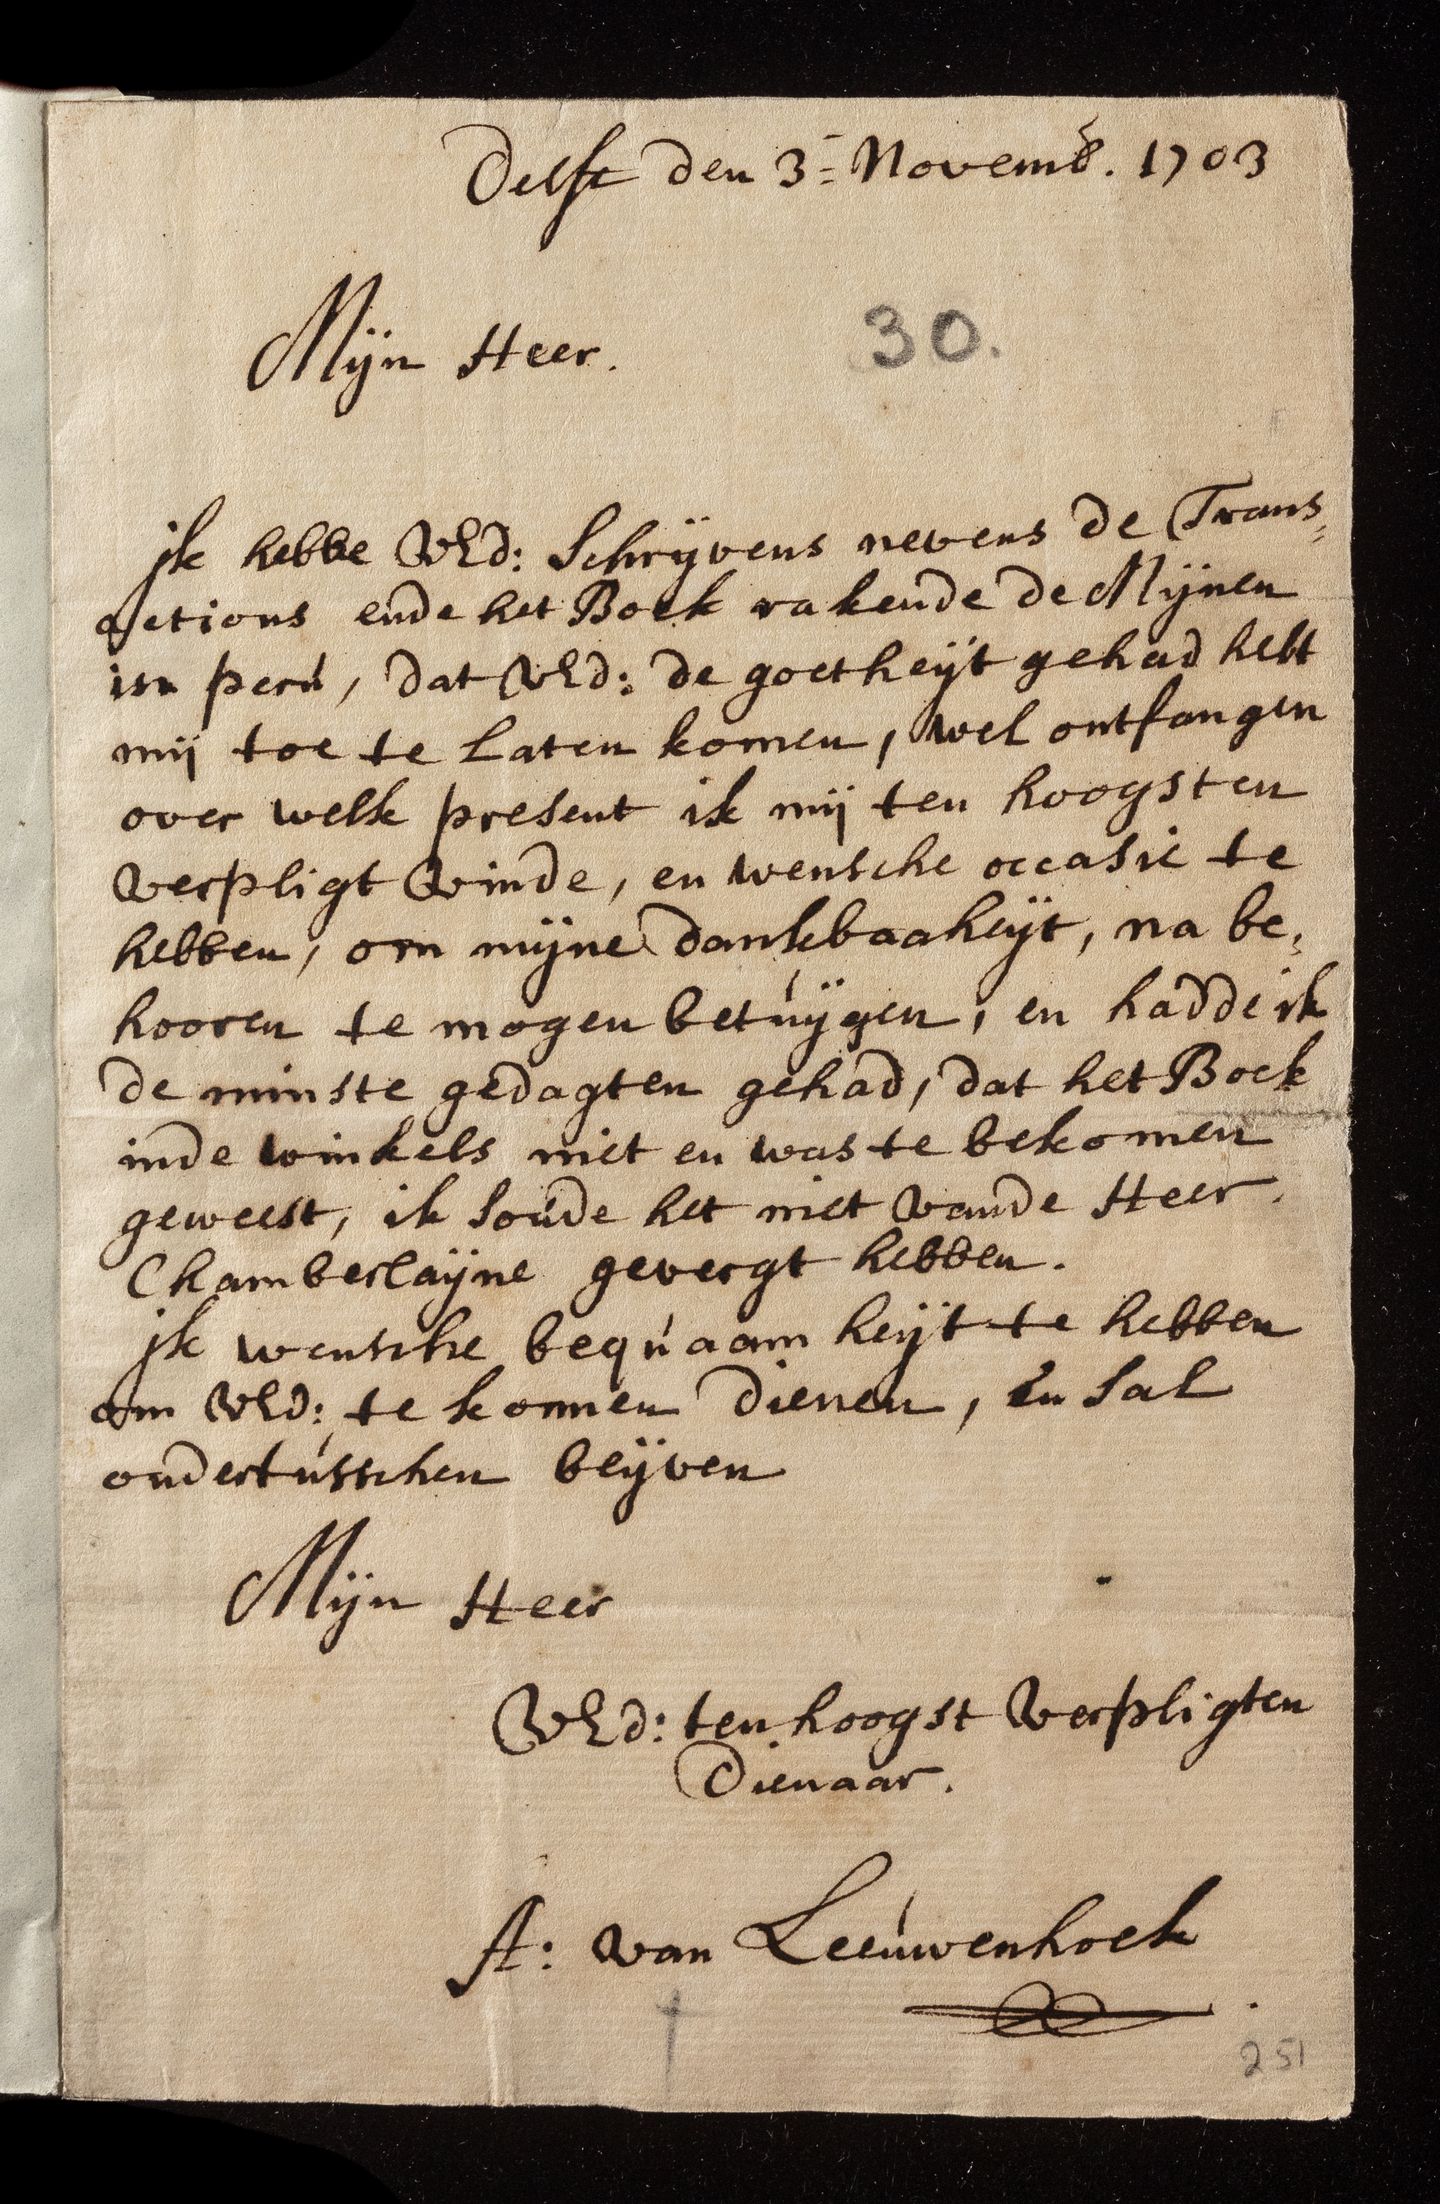 Delft den 3e Novemb. 1703
Mijn Heer.
30.
ik hebbe UEd: Schrijvens nevens de Trans=
actions ende het Boek rakende de Mijnen
in perú, dat UEd: de goetheijt gehad hebt
mij toe te laten komen, wel ontfangen
over welk present ik mij ten hoogsten
verpligt vinde, en wensche occasie te
hebben, om mijne dankbaaheijt, na be=
hooren te mogen betúijgen, en hadde ik
de minste gedagten gehad, dat het Boek
inde winkels niet en was te bekomen
geweest, ik soúde het niet vande Heer
Chamberlaijne gevergt hebben.
ik wensche beqúaamheijt te hebben
om UEd: te konnen dienen, en sal
ondertússchen beijven
Mijn Heer
UEd: ten hoogst verpligten
Dienaar.
A: van Leeúwenhoek
251